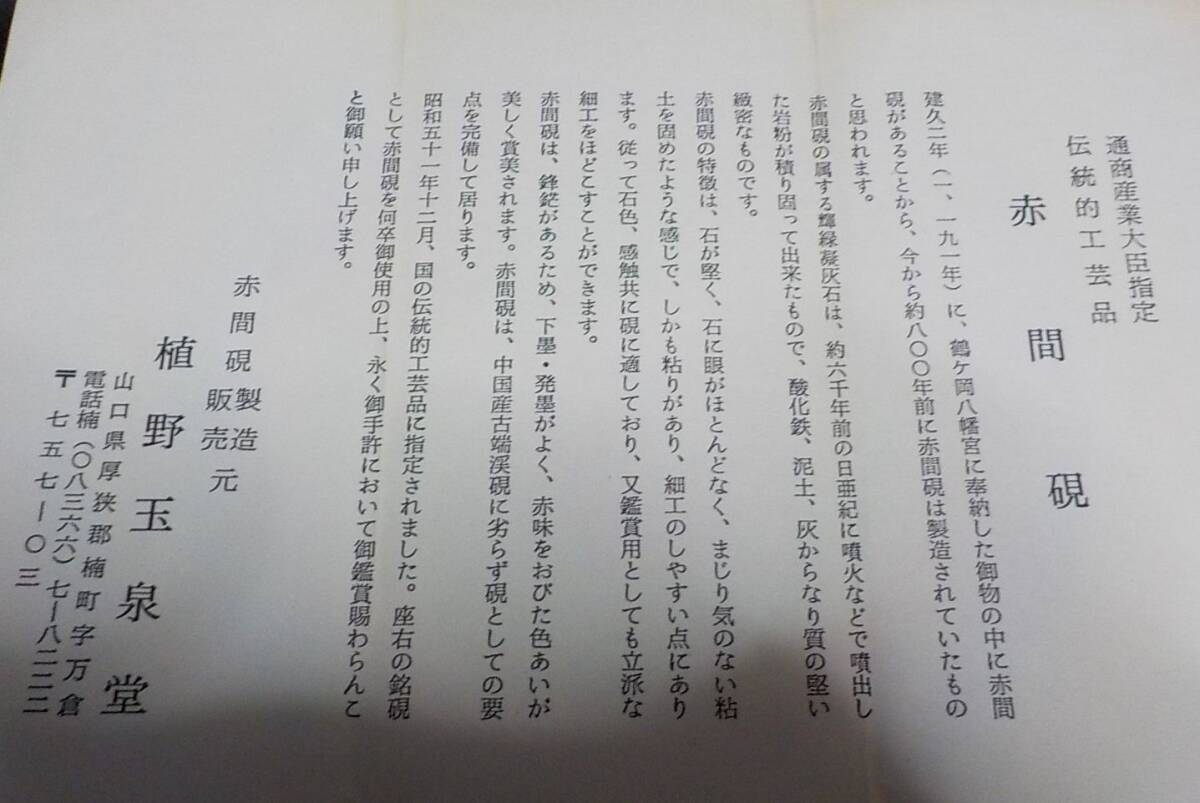 通商産業大臣指定
伝統的工芸品
赤間硯
建久二年（一、一九一年）に、鶴ケ岡八幡宮に奉納した御物の中に赤間
硯があることから、今から約八〇〇年前に赤間硯は製造されていたもの
と思われます。
赤間硯の属する輝緑凝灰石は、約六千年前の日亜紀に噴火などで噴出し
た岩粉が積り固って出来たもので、酸化鉄、泥土、灰からなり質の堅い
緻密なものです。
赤間硯の特徴は、石が堅く、石に眼がほとんどなく、まじり気のない粘
土を固めたような感じで、しかも粘りがあり、細工のしやすい点にあり
ます。従って石色、感触共に硯に適しており、又鑑賞用としても立派な
細工をほどこすことができます。
赤間硯は、鋒鋩があるため、下墨・発墨がよく、赤味をおびた色あいが
美しく賞美されます。赤間硯は、中国産古端渓硯に劣らず硯としての要
点を完備して居ります。
昭和五十一年十二月、国の伝統的工芸品に指定されました。座右の銘硯
として赤間硯を何卒御使用の上、永く御手許において御鑑賞賜わらんこ
と御願い申し上げます。
赤間硯製造
販売元
植野玉泉堂
山口県厚狭郡楠町字万倉
電話楠（〇八三六六）七ー八二二二
〒七五七ー〇三